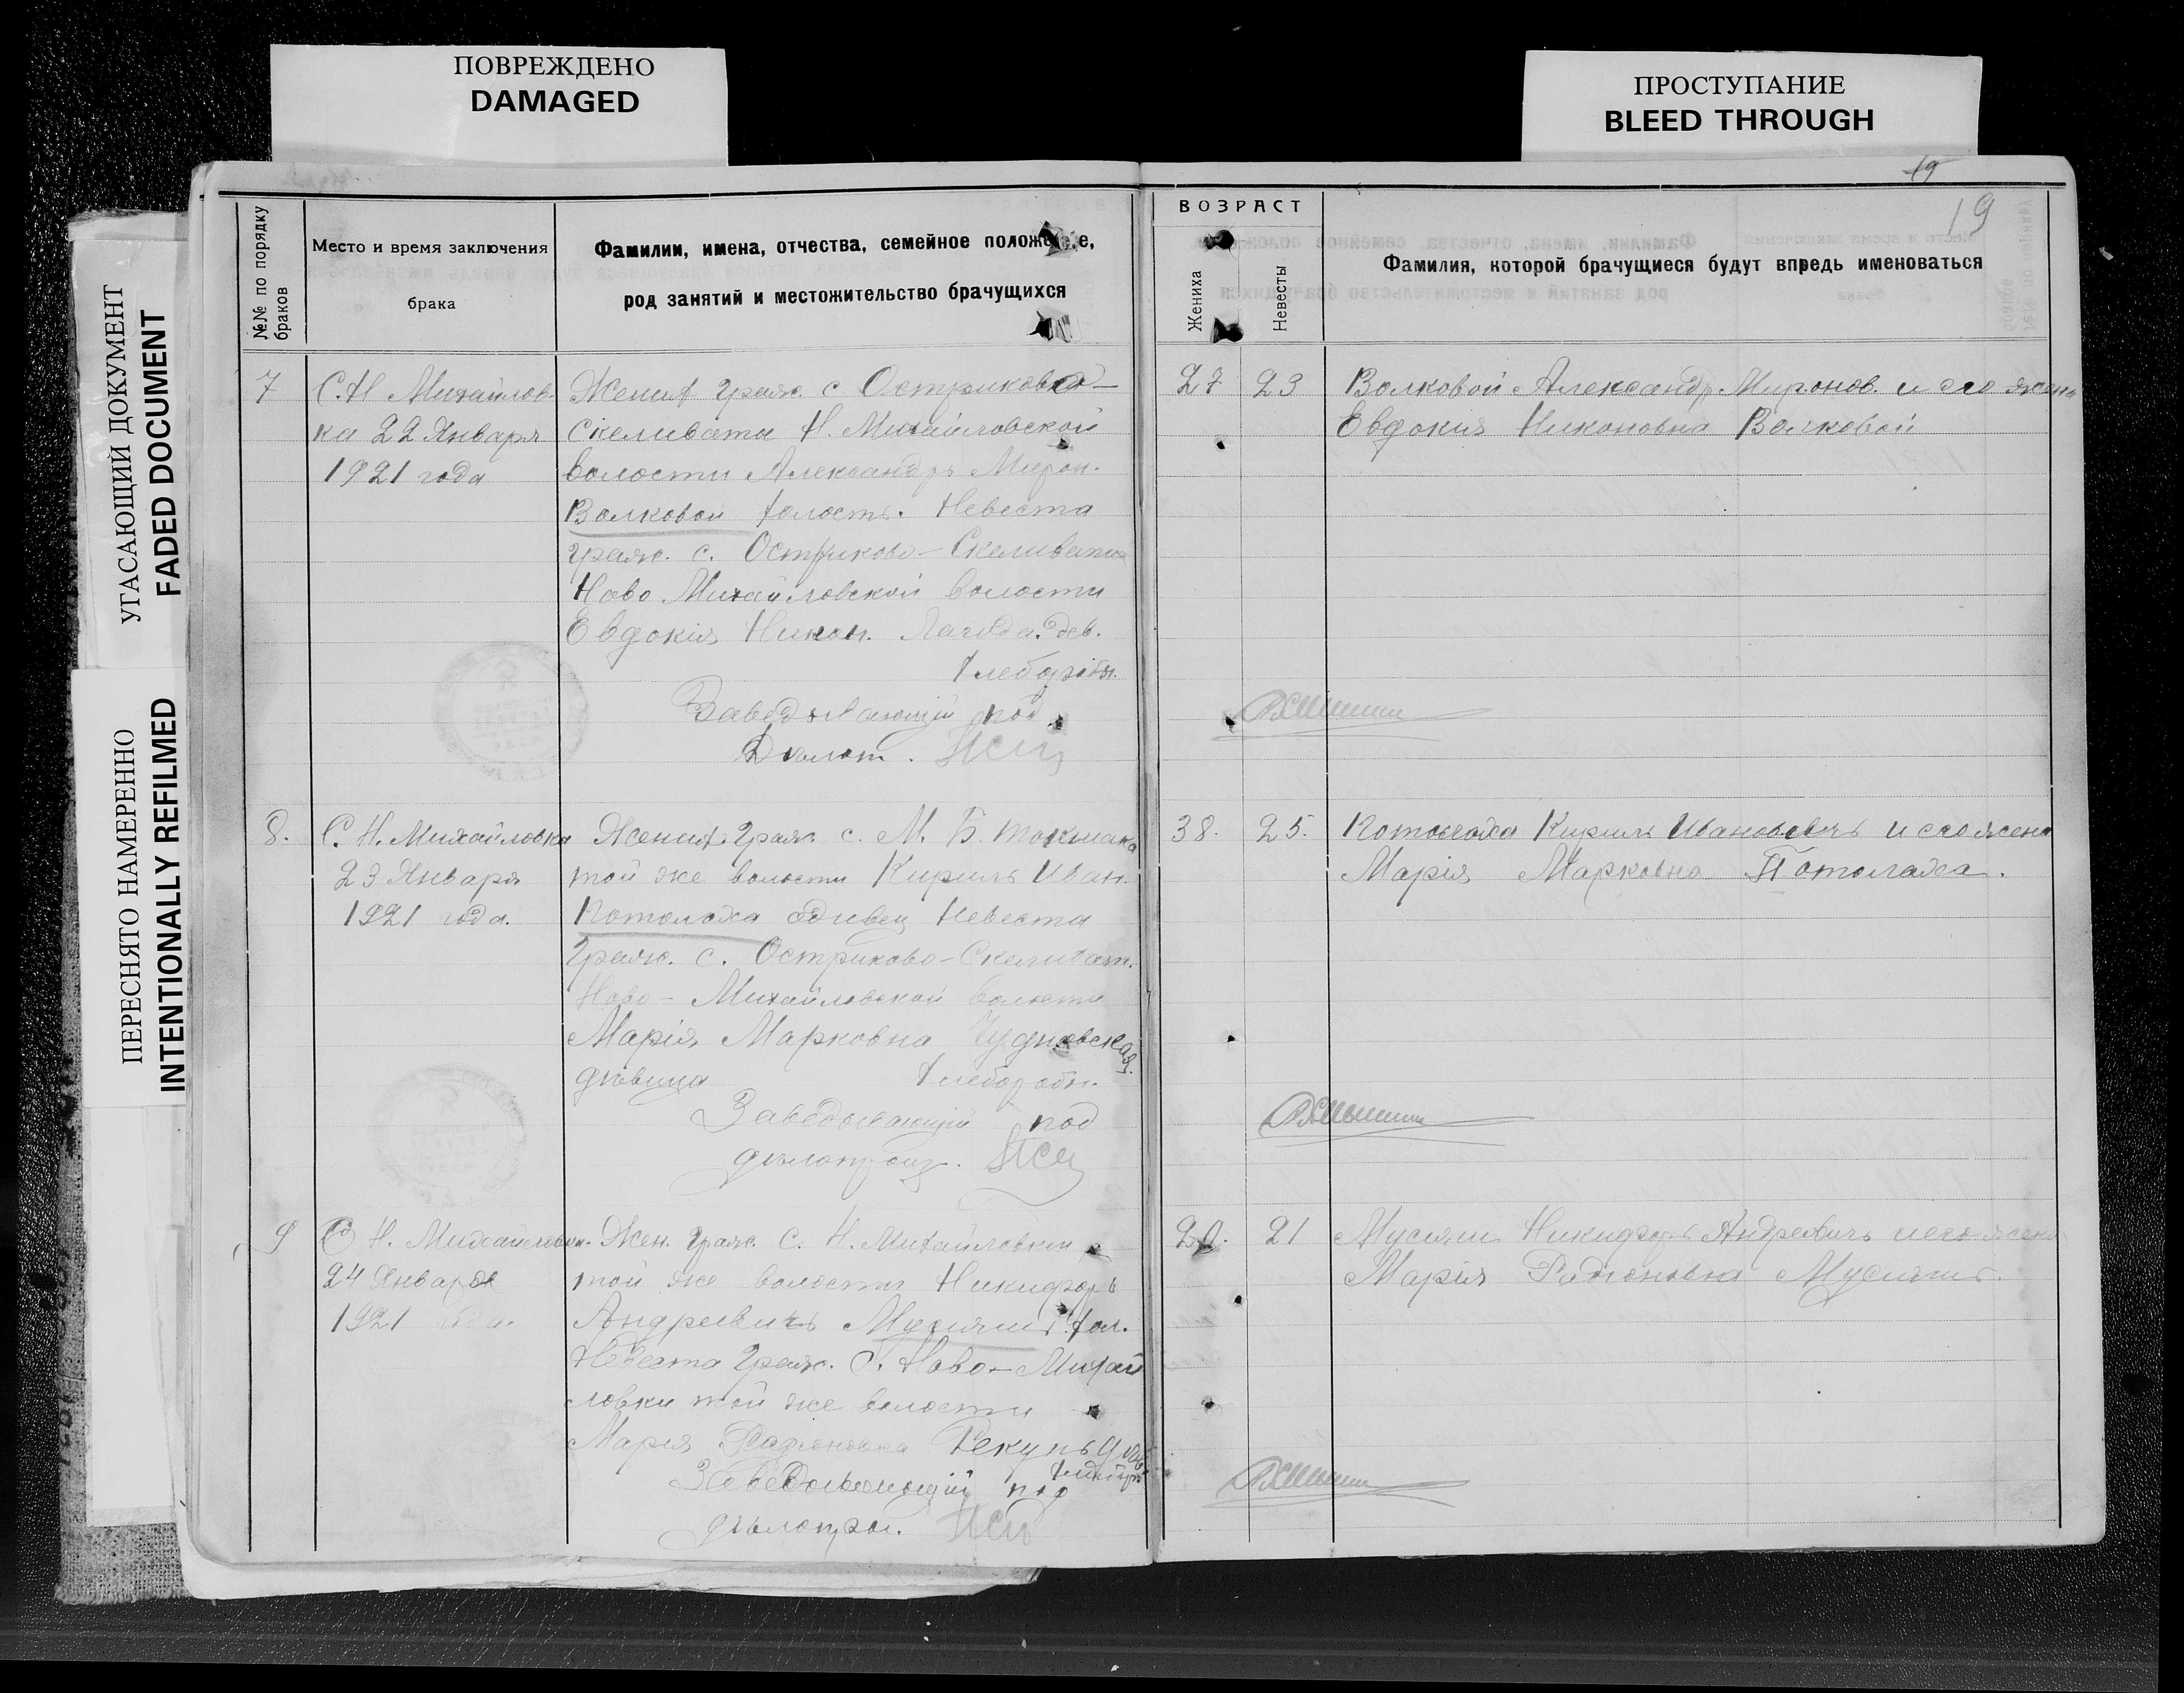 ПОВРЕЖДЕНО
DAMAGED
ПРОСТУПАНИЕ
BLEED THROUGH
УГАСАЮЩИЙ ДОКУМЕНТ
FADED DOCUMENT
ПЕРЕСНЯТО НАМЕРЕННО
INTENTIONALLY REFILMED
19
19
№№ по порядку
браков
Место и время заключения
брака
Фамилии, имена, отчества, семейное положение,
род занятий и местожительство брачущихся
ВОЗРАСТ
Жениха
Невесты
Фамилия, которой брачущиеся будут впредь именоваться
7
С. Н Михайлов-
ка 22 Января
1921 года
Жених граж. с Остриково-
Скеливата Н. Михайловской
волости Александръ Мирон.
Волковой холостъ. Невеста
граж. с. Остриково-Скеливата
Ново Михайловской волости
Евдокія Никон. дев.
хлебороб.
Заведывающій под
27
23
Волковой Александр Миронов. и его жена
Евдокия Никоновна Волковой
8.
С. Н. Михайловка
23 Января
1921 года.
Жених граж. с. М. Б. Токмака
той же волости Кирилъ Иван.
Потолоха вдовец Невеста
граж. с. Остриково-Скеливат.
Ново-Михайловской волости
Марія Марковна Чудновская
дѣвица хлебороб.
Заведывающій под
дѣлопроиз.
38.
25.
Потолоха Кирилъ Ивановичъ и его жена
Марія Марковна Потолаха.
9
С Н. Михайловка.
24 Января
1921 года.
Жен. граж. с. Н. Михайловки
той же волости Никифоръ
Андреевичъ Мусияшъ хол.
Невеста граж. с. Ново-Михай
ловки той же волости
Мария Радионовна Рекунъ дѣв.
хлебороб
Заведывающій под
дѣлопрои.
20.
21
Мусияш Никифоръ Андреевичъ и его жена
Марія Радионовна Мусияшъ.